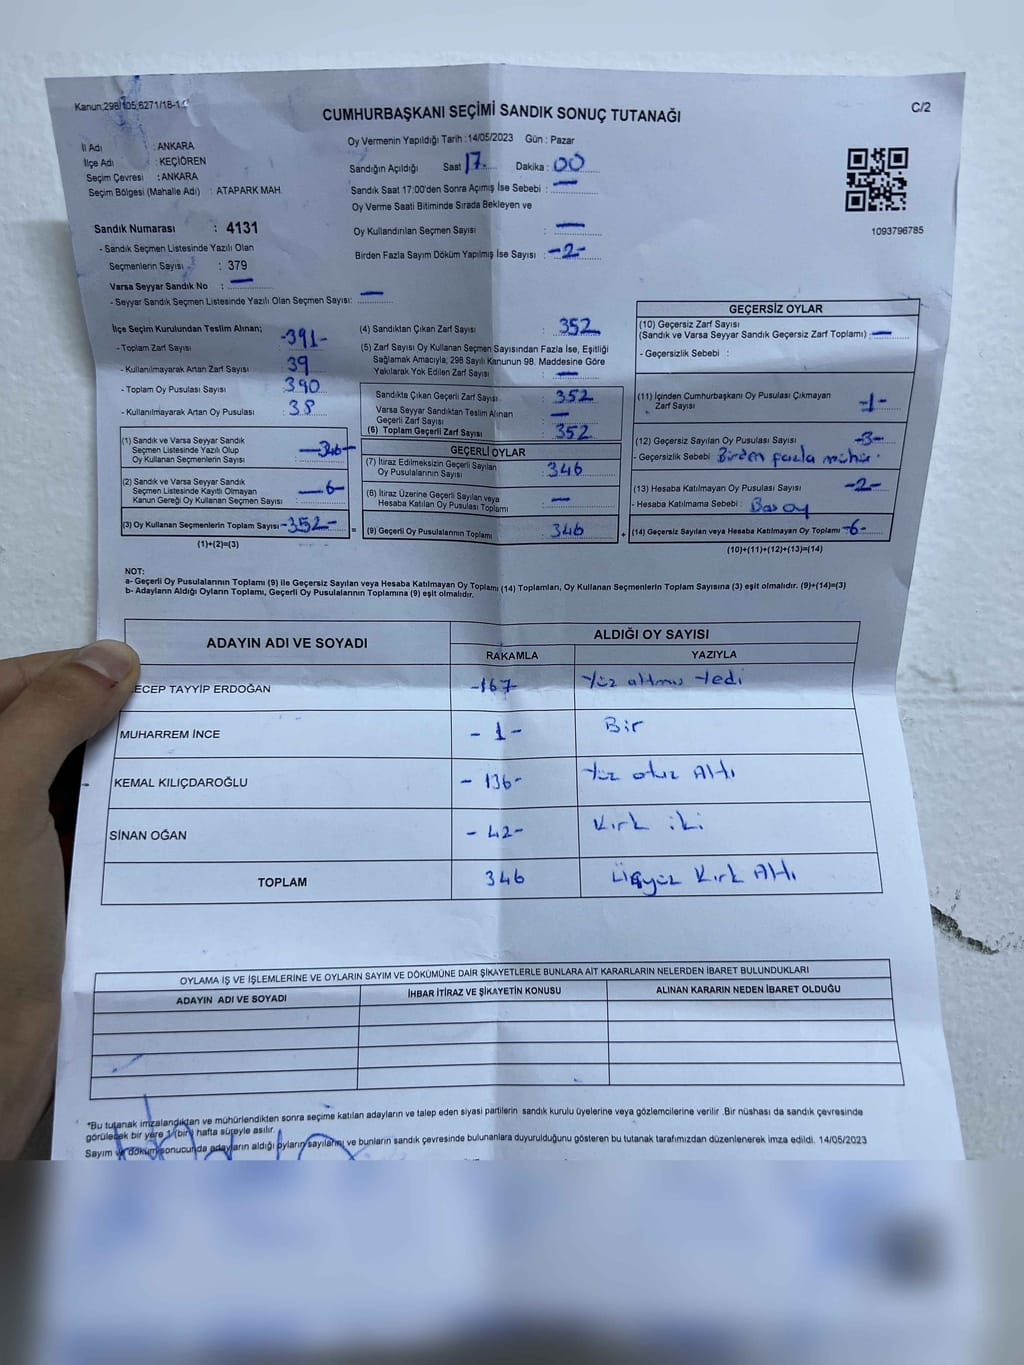 Kanun;298/105;6271/18-1
C/2
CUMHURBAŞKANI SEÇİMİ SANDIK SONUÇ TUTANAĞI
İl Adı : ANKARA
İlçe Adı : KEÇİÖREN
Seçim Çevresi : ANKARA
Seçim Bölgesi (Mahalle Adı) : ATAPARK MAH.
Oy Vermenin Yapıldığı Tarih : 14/05/2023 Gün : Pazar
Sandığın Açıldığı Saat 17 Dakika : 00
Sandık Saat 17:00'den Sonra Açımış İse Sebebi : —
Oy Verme Saati Bitiminde Sırada Bekleyen ve
Oy Kullandırılan Seçmen Sayısı : —
Birden Fazla Sayım Döküm Yapılmış İse Sayısı : -2-
1093796785
Sandık Numarası : 4131
- Sandık Seçmen Listesinde Yazılı Olan
Seçmenlerin Sayısı : 379
Varsa Seyyar Sandık No : —
- Seyyar Sandık Seçmen Listesinde Yazılı Olan Seçmen Sayısı: —
İlçe Seçim Kurulundan Teslim Alınan;
- Toplam Zarf Sayısı : -391-
- Kullanılmayarak Artan Zarf Sayısı : 39
- Toplam Oy Pusulası Sayısı : 390
- Kullanılmayarak Artan Oy Pusulası : 38
(1) Sandık ve Varsa Seyyar Sandık
Seçmen Listesinde Yazılı Olup
Oy Kullanan Seçmenlerin Sayısı : —346—
(2) Sandık ve Varsa Seyyar Sandık
Seçmen Listesinde Kayıtlı Olmayan
Kanun Gereği Oy Kullanan Seçmen Sayısı : —6—
(3) Oy Kullanan Seçmenlerin Toplam Sayısı -352- =
(1)+(2)=(3)
(4) Sandıktan Çıkan Zarf Sayısı : 352
(5) Zarf Sayısı Oy Kullanan Seçmen Sayısından Fazla İse, Eşitliği
Sağlamak Amacıyla; 298 Sayılı Kanunun 98. Maddesine Göre
Yakılarak Yok Edilen Zarf Sayısı : —
Sandıkta Çıkan Geçerli Zarf Sayısı : 352
Varsa Seyyar Sandıktan Teslim Alınan
Geçerli Zarf Sayısı : —
(6) Toplam Geçerli Zarf Sayısı : 352
GEÇERLİ OYLAR
(7) İtiraz Edilmeksizin Geçerli Sayılan
Oy Pusulalarının Sayısı : 346
(8) İtiraz Üzerine Geçerli Sayılan veya
Hesaba Katılan Oy Pusulası Toplamı : —
(9) Geçerli Oy Pusulalarının Toplamı : 346 +
GEÇERSİZ OYLAR
(10) Geçersiz Zarf Sayısı
(Sandık ve Varsa Seyyar Sandık Geçersiz Zarf Toplamı) : —
- Geçersizlik Sebebi :
(11) İçinden Cumhurbaşkanı Oy Pusulası Çıkmayan
Zarf Sayısı : -1-
(12) Geçersiz Sayılan Oy Pusulası Sayısı : -3-
- Geçersizlik Sebebi : Birden fazla mühür.
(13) Hesaba Katılmayan Oy Pusulası Sayısı : -2-
- Hesaba Katılmama Sebebi : Boş oy
(14) Geçersiz Sayılan veya Hesaba Katılmayan Oy Toplamı : -6-
(10)+(11)+(12)+(13)=(14)
NOT:
a- Geçerli Oy Pusulalarının Toplamı (9) ile Geçersiz Sayılan veya Hesaba Katılmayan Oy Toplamı (14) Toplamları, Oy Kullanan Seçmenlerin Toplam Sayısına (3) eşit olmalıdır. (9)+(14)=(3)
b- Adayların Aldığı Oyların Toplamı, Geçerli Oy Pusulalarının Toplamına (9) eşit olmalıdır.
ADAYIN ADI VE SOYADI ALDIĞI OY SAYISI
RAKAMLA YAZIYLA
ECEP TAYYİP ERDOĞAN -167- Yüz altmış Yedi
MUHARREM İNCE -1- Bir
KEMAL KILIÇDAROĞLU -136- Yüz otuz Altı
SİNAN OĞAN -42- Kırk iki
TOPLAM 346 Üçyüz Kırk Altı
OYLAMA İŞ VE İŞLEMLERİNE VE OYLARIN SAYIM VE DÖKÜMÜNE DAİR ŞİKAYETLERLE BUNLARA AİT KARARLARIN NELERDEN İBARET BULUNDUKLARI
ADAYIN ADI VE SOYADI İHBAR İTİRAZ VE ŞİKAYETİN KONUSU ALINAN KARARIN NEDEN İBARET OLDUĞU
*Bu tutanak imzalandıktan ve mühürlendikten sonra seçime katılan adayların ve talep eden siyasi partilerin sandık kurulu üyelerine veya gözlemcilerine verilir .Bir nüshası da sandık çevresinde
görülecek bir yere 1 (bir) hafta süreyle asılır.
Sayım ve döküm sonucunda adayların aldığı oyların sayılarını ve bunların sandık çevresinde bulunanlara duyurulduğunu gösteren bu tutanak tarafımızdan düzenlenerek imza edildi. 14/05/2023